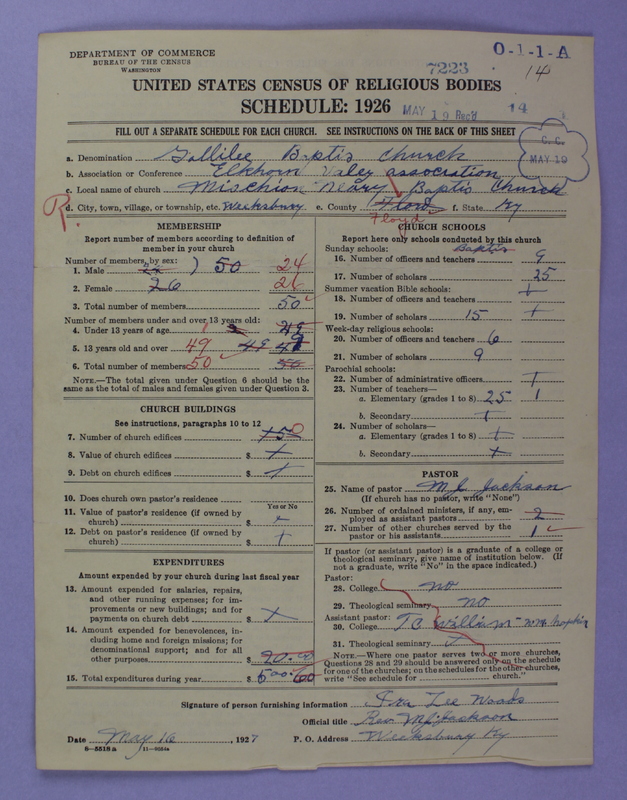 DEPARTMENT OF COMMERCE
BUREAU OF THE CENSUS
WASHINGTON
7223
O-1-1-A
14
UNITED STATES CENSUS OF RELIGIOUS BODIES
SCHEDULE: 1926
MAY 19 Rec'd
14
FILL OUT A SEPARATE SCHEDULE FOR EACH CHURCH. SEE INSTRUCTIONS ON THE BACK OF THIS SHEET
C. C.
MAY 19
a. Denomination Gallilee Baptis Church
b. Association or Conference Elkhorn Valey association
c. Local name of church Mischion Neary Baptis Church
d. City, town, village, or township, etc. Weeksbury e. County Floyd f. State Ky
Floyd
R.
MEMBERSHIP
Report number of members according to definition of member in your church
Number of members, by sex:
1. Male 22 ) 50 24
2. Female 26 26
3. Total number of members 50
Number of members under and over 13 years old:
4. Under 13 years of age 1
5. 13 years old and over 49 49
6. Total number of members 50 50
NOTE.—The total given under Question 6 should be the same as the total of males and females given under Question 3.
CHURCH BUILDINGS
See instructions, paragraphs 10 to 12
7. Number of church edifices 0
8. Value of church edifices $ +
9. Debt on church edifices $ +
10. Does church own pastor's residence
Yes or No
11. Value of pastor's residence (if owned by church) $ +
12. Debt on pastor's residence (if owned by church) $ +
EXPENDITURES
Amount expended by your church during last fiscal year
13. Amount expended for salaries, repairs, and other running expenses; for improvements or new buildings; and for payments on church debt $ +
14. Amount expended for benevolences, including home and foreign missions; for denominational support; and for all other purposes $
15. Total expenditures during year $
CHURCH SCHOOLS
Report here only schools conducted by this church
Sunday schools: Baptis
16. Number of officers and teachers 9
17. Number of scholars 25
Summer vacation Bible schools:
18. Number of officers and teachers +
19. Number of scholars 15 +
Week-day religious schools:
20. Number of officers and teachers 6
21. Number of scholars 9
Parochial schools:
22. Number of administrative officers +
23. Number of teachers—
a. Elementary (grades 1 to 8) 25 1
b. Secondary +
24. Number of scholars—
a. Elementary (grades 1 to 8) +
b. Secondary +
PASTOR
25. Name of pastor M J Jackson
(If church has no pastor, write "None")
26. Number of ordained ministers, if any, employed as assistant pastors 2
27. Number of other churches served by the pastor or his assistants 1
If pastor (or assistant pastor) is a graduate of a college or theological seminary, give name of institution below. (If not a graduate, write "No" in the space indicated.)
Pastor:
28. College no
29. Theological seminary no
Assistant pastor:
30. College T C William
31. Theological seminary
NOTE.—Where one pastor serves two or more churches, Questions 28 and 29 should be answered only on the schedule for one of the churches; on the schedules for the other churches, write "See schedule for church."
Signature of person furnishing information Ira Lee Woods
Official title Rev. M J Jackson
Date May 16, 1927 P. O. Address Weeksbury Ky